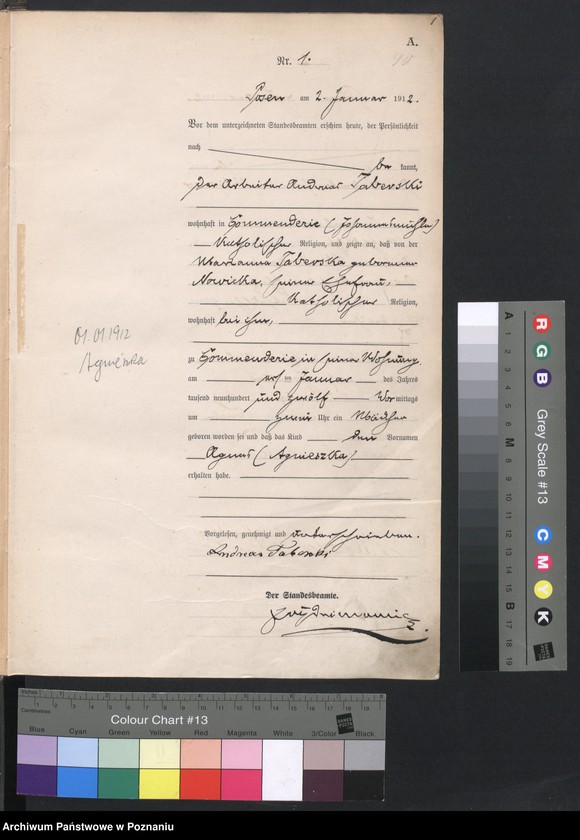 1
A.
Nr. 1.
Posen am 2. Januar 1912.
Vor dem unterzeichneten Standesbeamten erschien heute, der Persönlichkeit
nach
be kannt,
der Arbeiter Andreas Taberski
wohnhaft in Commenderie (Johannesmühle)
katholischer Religion, und zeigte an, daß von der
Marianna Taberska geborenen
Nowicka, seiner Ehefrau,
katholischer Religion,
wohnhaft bei ihm,
zu Commenderie in seiner Wohnung,
am im Januar des Jahres
tausend neunhundert und zwölf Vor mittags
um Uhr ein Mädchen
geboren worden sei und daß das Kind den Vornamen
Agnes (Agnieszka)
erhalten habe.
Vorgelesen, genehmigt und unterschrieben.
Andreas Taberski
Der Standesbeamte.
01.01.1912
Agnieszka
Inches 1 2 3 4 5 6 7 8
Centimetres 1 2 3 4 5 6 7 8 9 10 11 12 13 14 15 16 17 18 19
Colour Chart #13
Blue Cyan Green Yellow Red Magenta White 3/Color Black
Grey Scale #13
R G B C M Y K
A 1 2 3 4 5 6 M 8 9 10 11 12 13 14 15 B 17 18 19
Archiwum Państwowe w Poznaniu